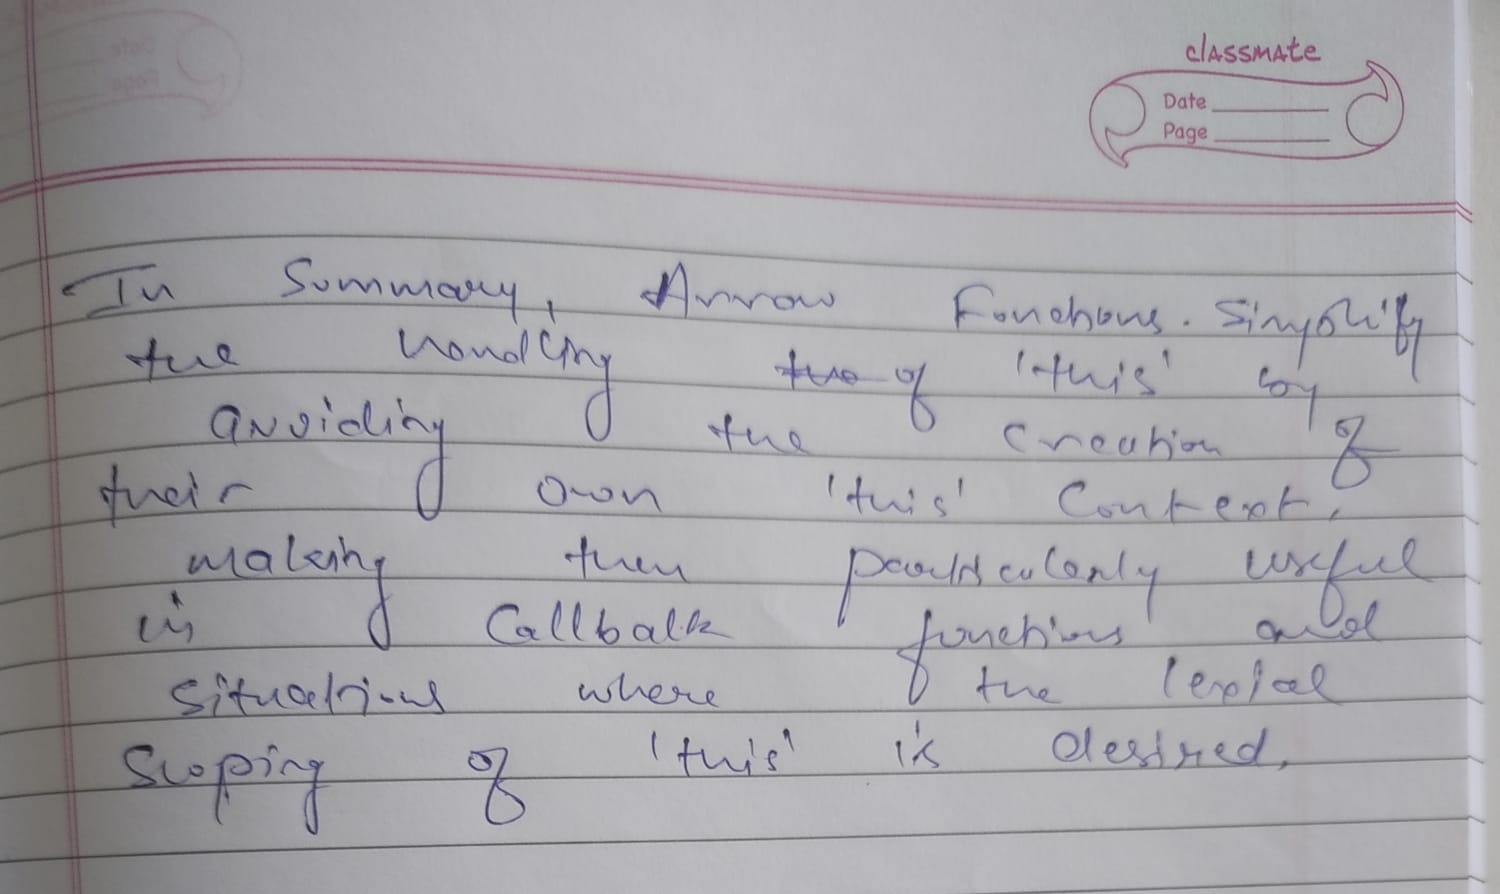 classmate
Date
Page
In Summary, Arrow Functions. Simplify
the handling of 'this' by
avoiding the creation of
their own 'this' Context,
making them particularly useful
in Callback functions and
situations where the lexical
Scoping of 'this' is desired.